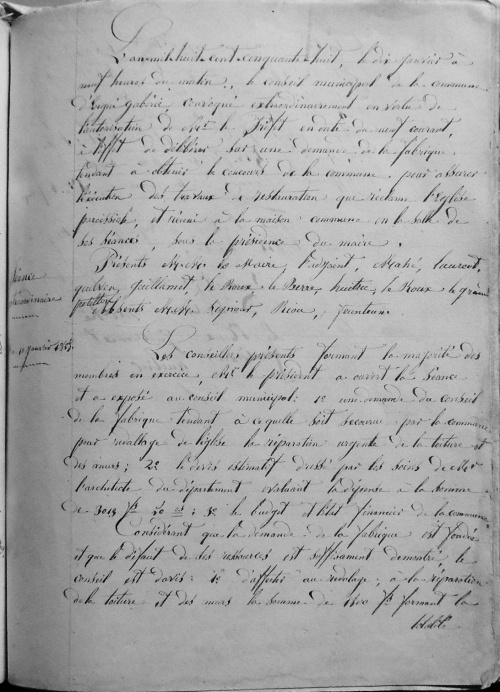 L'an mil huit cent cinquante huit, le dix janvier à
neuf heures du matin, le conseil municipal de la commune
d'Ergué gabéric convoqué extraordinairement en vertu de
l'autorisation de Mr le Préfet en date du neuf courant,
à l'effet de délibérer sur une demande de la fabrique
tendant à obtenir le concours de la commune pour assurer
l'exécution des travaux de restauration que réclame l'église
paroissiale, et réuni à la maison commune en la salle de
ses séances, sous la présidence du maire.
Présents M.M. le Maire, Mahé, Laurent,
Guillamet, le Roux, le Berre, huitric, le Roux, le grand
pétillon
Absents M.M. Riou,
Séance
extraordinaire
Du 10 janvier 1858
Les conseillers présents formant la majorité des
membres en exercice, Mr le président a ouvert la séance
et a exposé au conseil municipal: 1º une demande du conseil
de la fabrique tendant à ce qu'elle soit secourue par la commune
pour l'église la réparation urgente de la toiture et
des murs; 2º le devis estimatif dressé par les soins de Mr
l'architecte du département évaluant la dépense à la somme
de fs 50 cs; 3º le budget et l'état financier de la commune
Considérant que la demande de la fabrique est fondée
et que le défaut de ses ressources est suffisament démontré le
conseil est d'avis: 1º d'affecter au à la réparation
de la toiture et des murs la somme de 1800 fs formant la